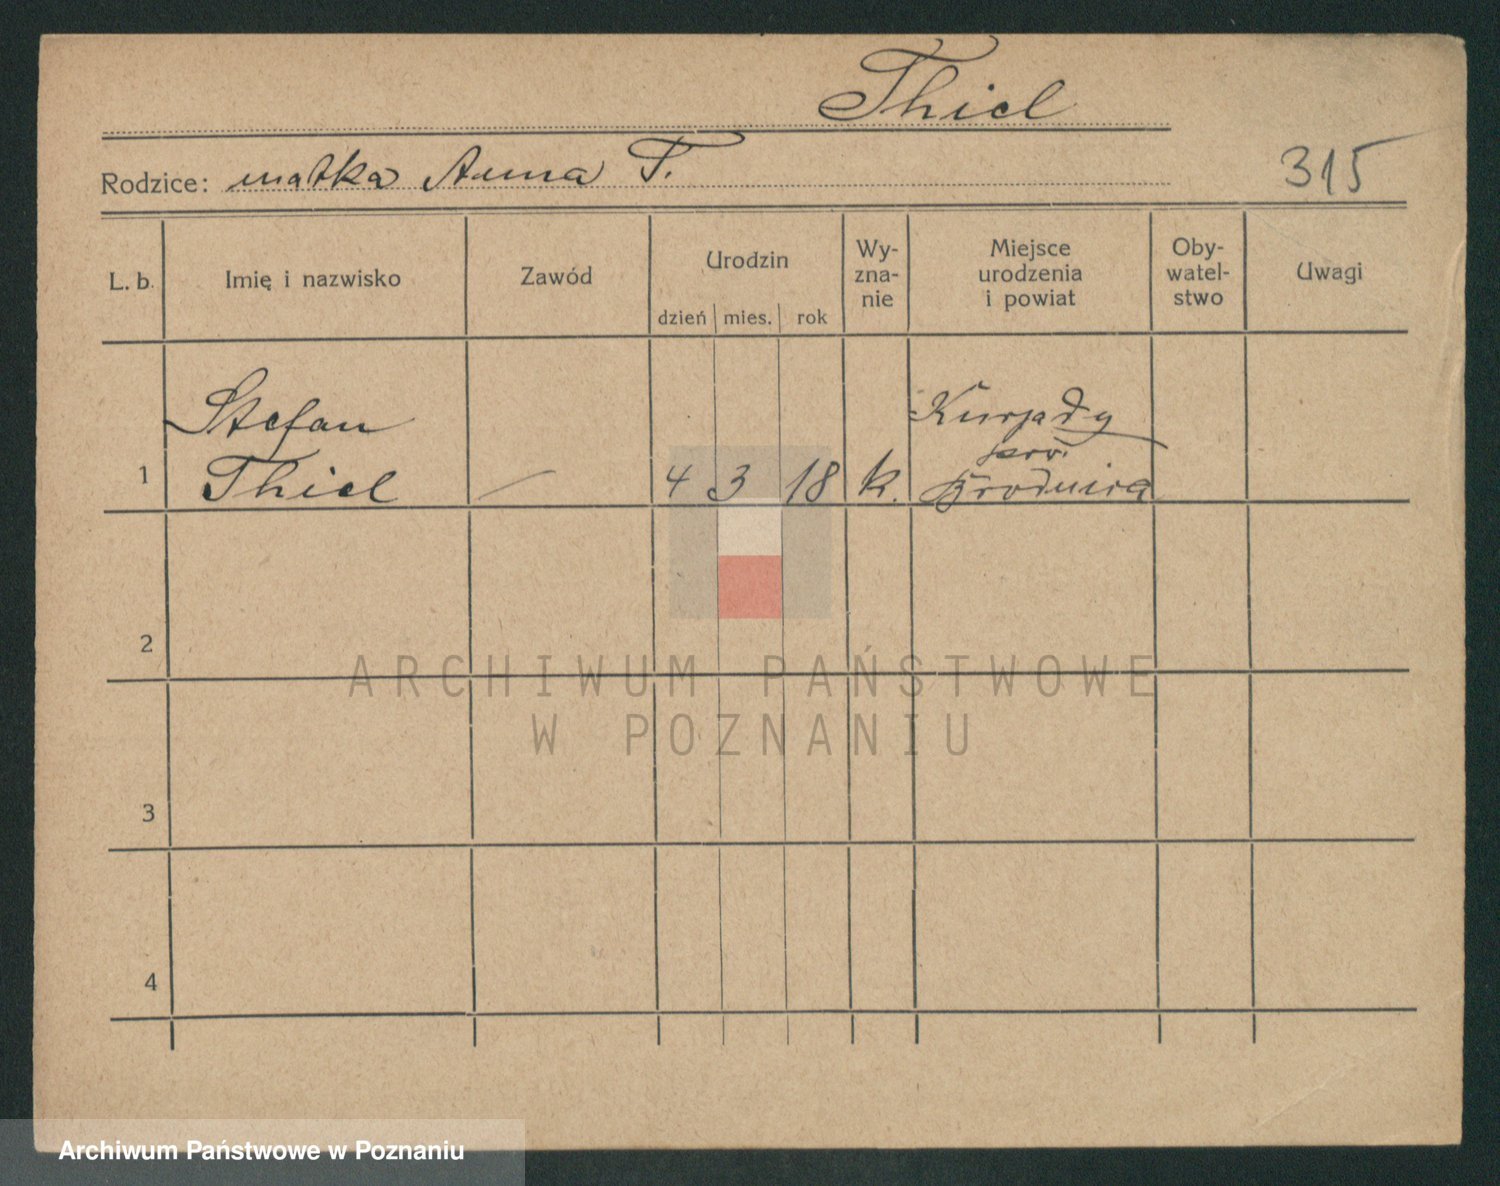 Thiel
Rodzice: matka Anna T.
315
L. b. Imię i nazwisko Zawód Urodzin Wy-zna-nie Miejsce urodzenia i powiat Oby-watel-stwo Uwagi
dzień mies. rok
Stefan
Thiel
1 4 3 18 k.
Kurjady
pow.
Brodnica
2
3
4
ARCHIWUM PAŃSTWOWE
W POZNANIU
Archiwum Państwowe w Poznaniu